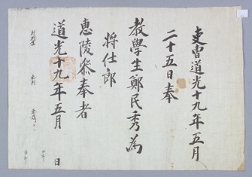 吏曹道光十九年五月
二十五日奉
教學生鄭民秀為
將仕郎
惠陵參奉者
道光十九年五月 日